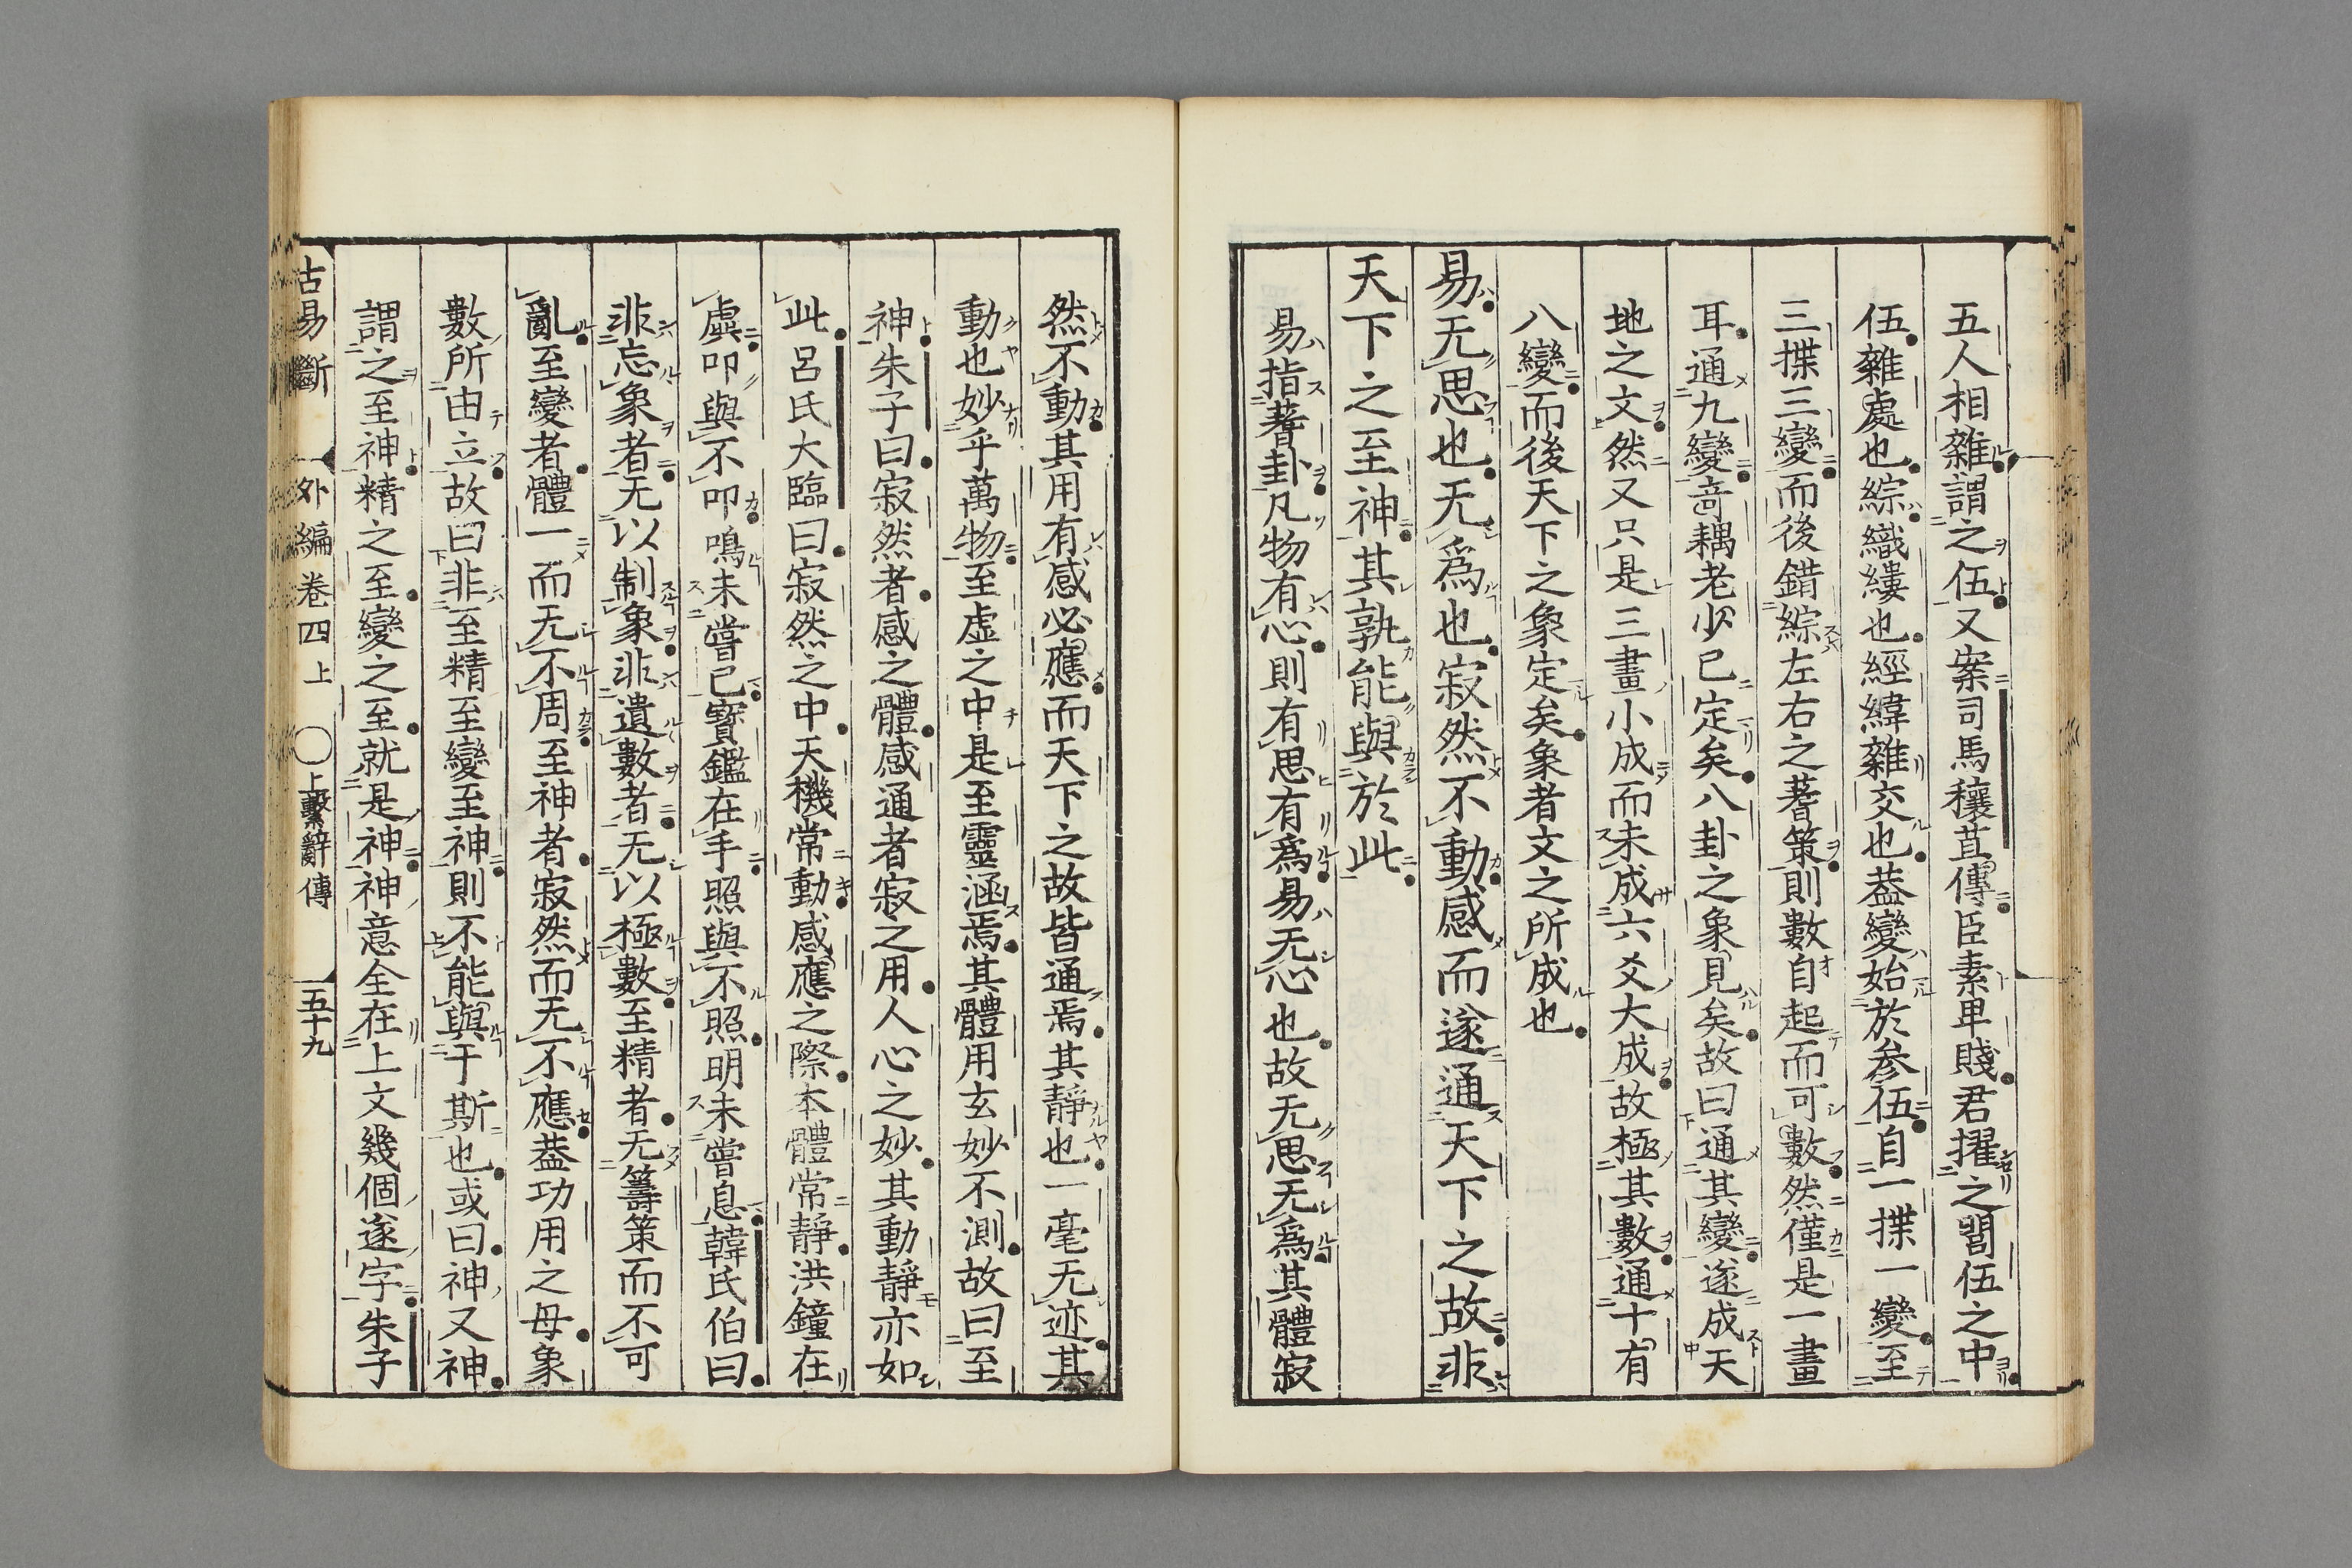 五人相雜謂之伍又案司馬穰苴傳臣素卑賤君擢之閭伍之中
伍雜處也綜織縷也經緯雜交也葢變始於参伍自一揲一變至
三揲三變而後錯綜左右之蓍策則數自起而可數然僅是一畫
耳通九變奇耦老少已定矣八卦之象見矣故曰通其變遂成天
地之文然又只是三畫小成而未成六爻大成故極其數通十有
八變而後天下之象定矣象者文之所成也
易无思也无爲也寂然不動感而遂通天下之故非
天下之至神其孰能與於此
易指蓍卦凡物有心則有思有爲易无心也故无思无爲其體寂
然不動其用有感必應而天下之故皆通焉其靜也一毫无迹其
動也妙乎萬物至虚之中是至靈涵焉其體用玄妙不測故曰至
神朱子曰寂然者感之體感通者寂之用人心之妙其動靜亦如
此呂氏大臨曰寂然之中天機常動感應之際本體常靜洪鐘在
虛叩與不叩鳴未嘗已寶鑑在手照與不照明未嘗息韓氏伯曰
非忘象者无以制象非遺數者无以極數至精者无籌策而不可
亂至變者體一而无不周至神者寂然而无不應葢功用之母象
數所由立故曰非至精至變至神則不能與于斯也或曰神又神
謂之至神精之至變之至就是神神意全在上文幾個遂字朱子
古易斷 外編 卷四上 〇上繫辭傳 五十九